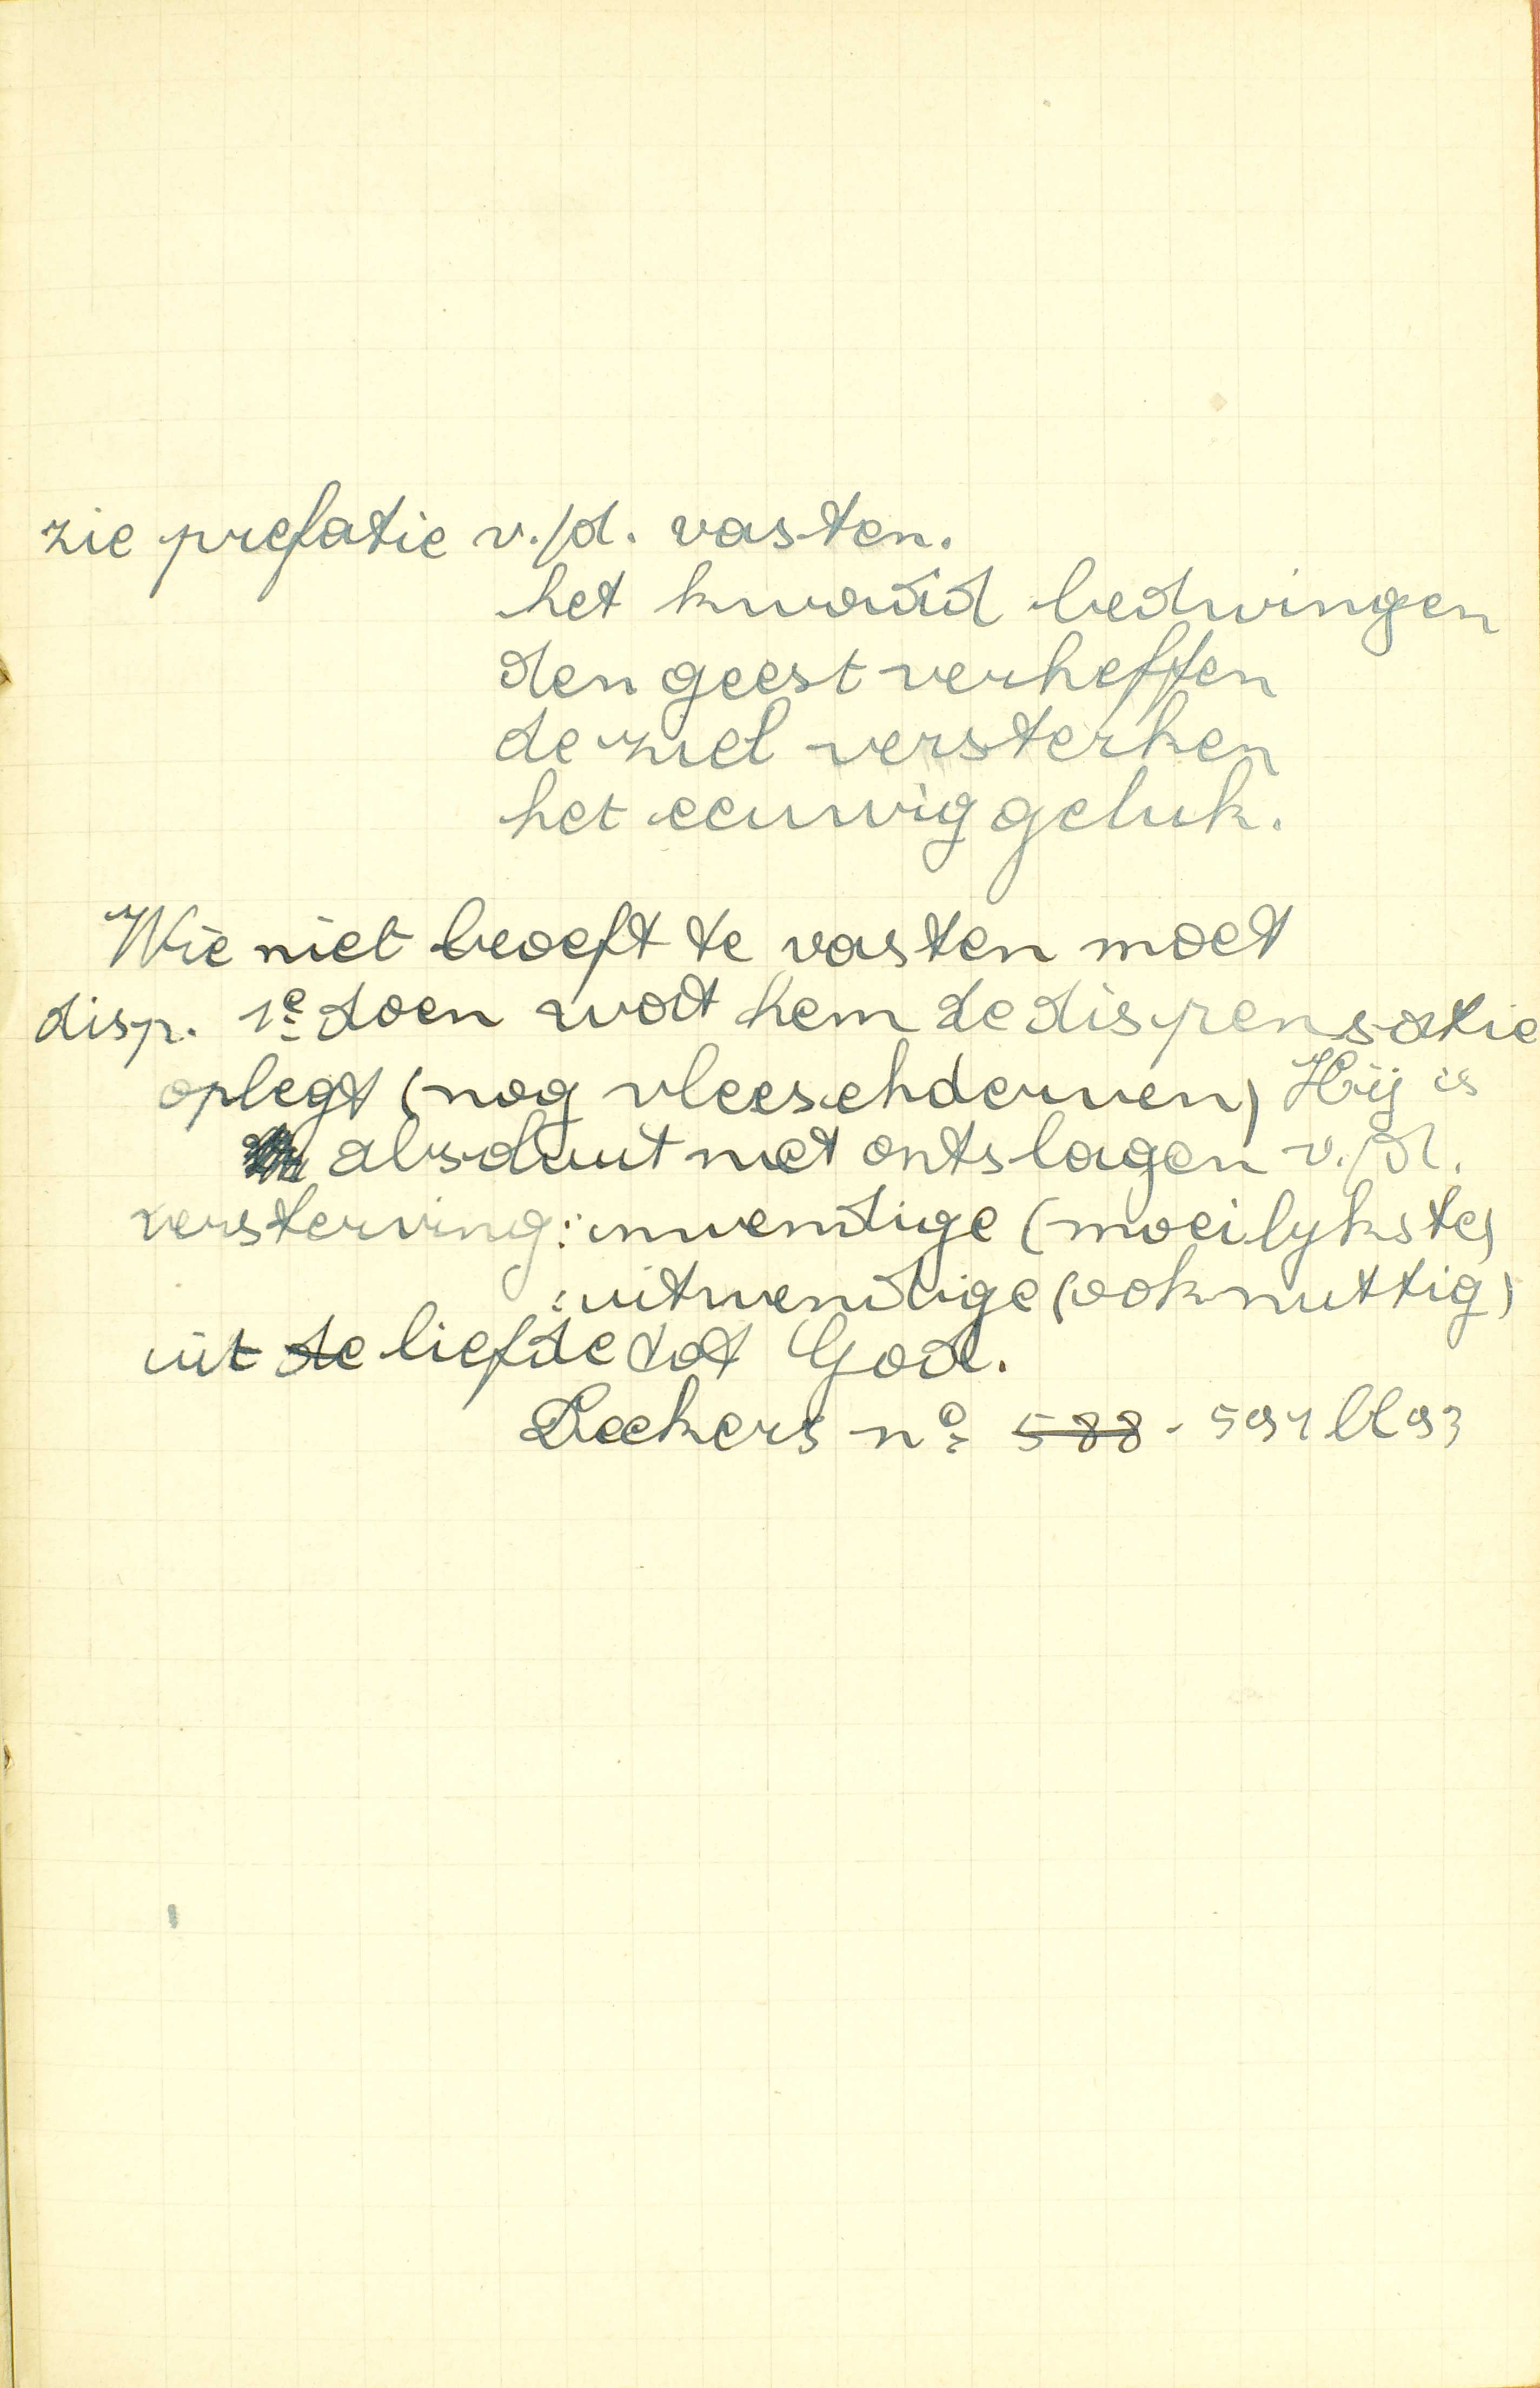 zie prefatie v./d. vasten.
het kwaad bedwingen
den geest verheffen
de ziel versterken
het eeuwig geluk.
Wie niet beoeft te vasten moet
disp. 1e doen wat hem de dispensatie
oplegt (nog vleeschderven) Hij is
absoluut niet ontslagen v./d.
versterving: inwendige (moeilykste)
: uitwendige (ook nuttig)
uit de liefde tot God.
no 588 - 591 bl 93